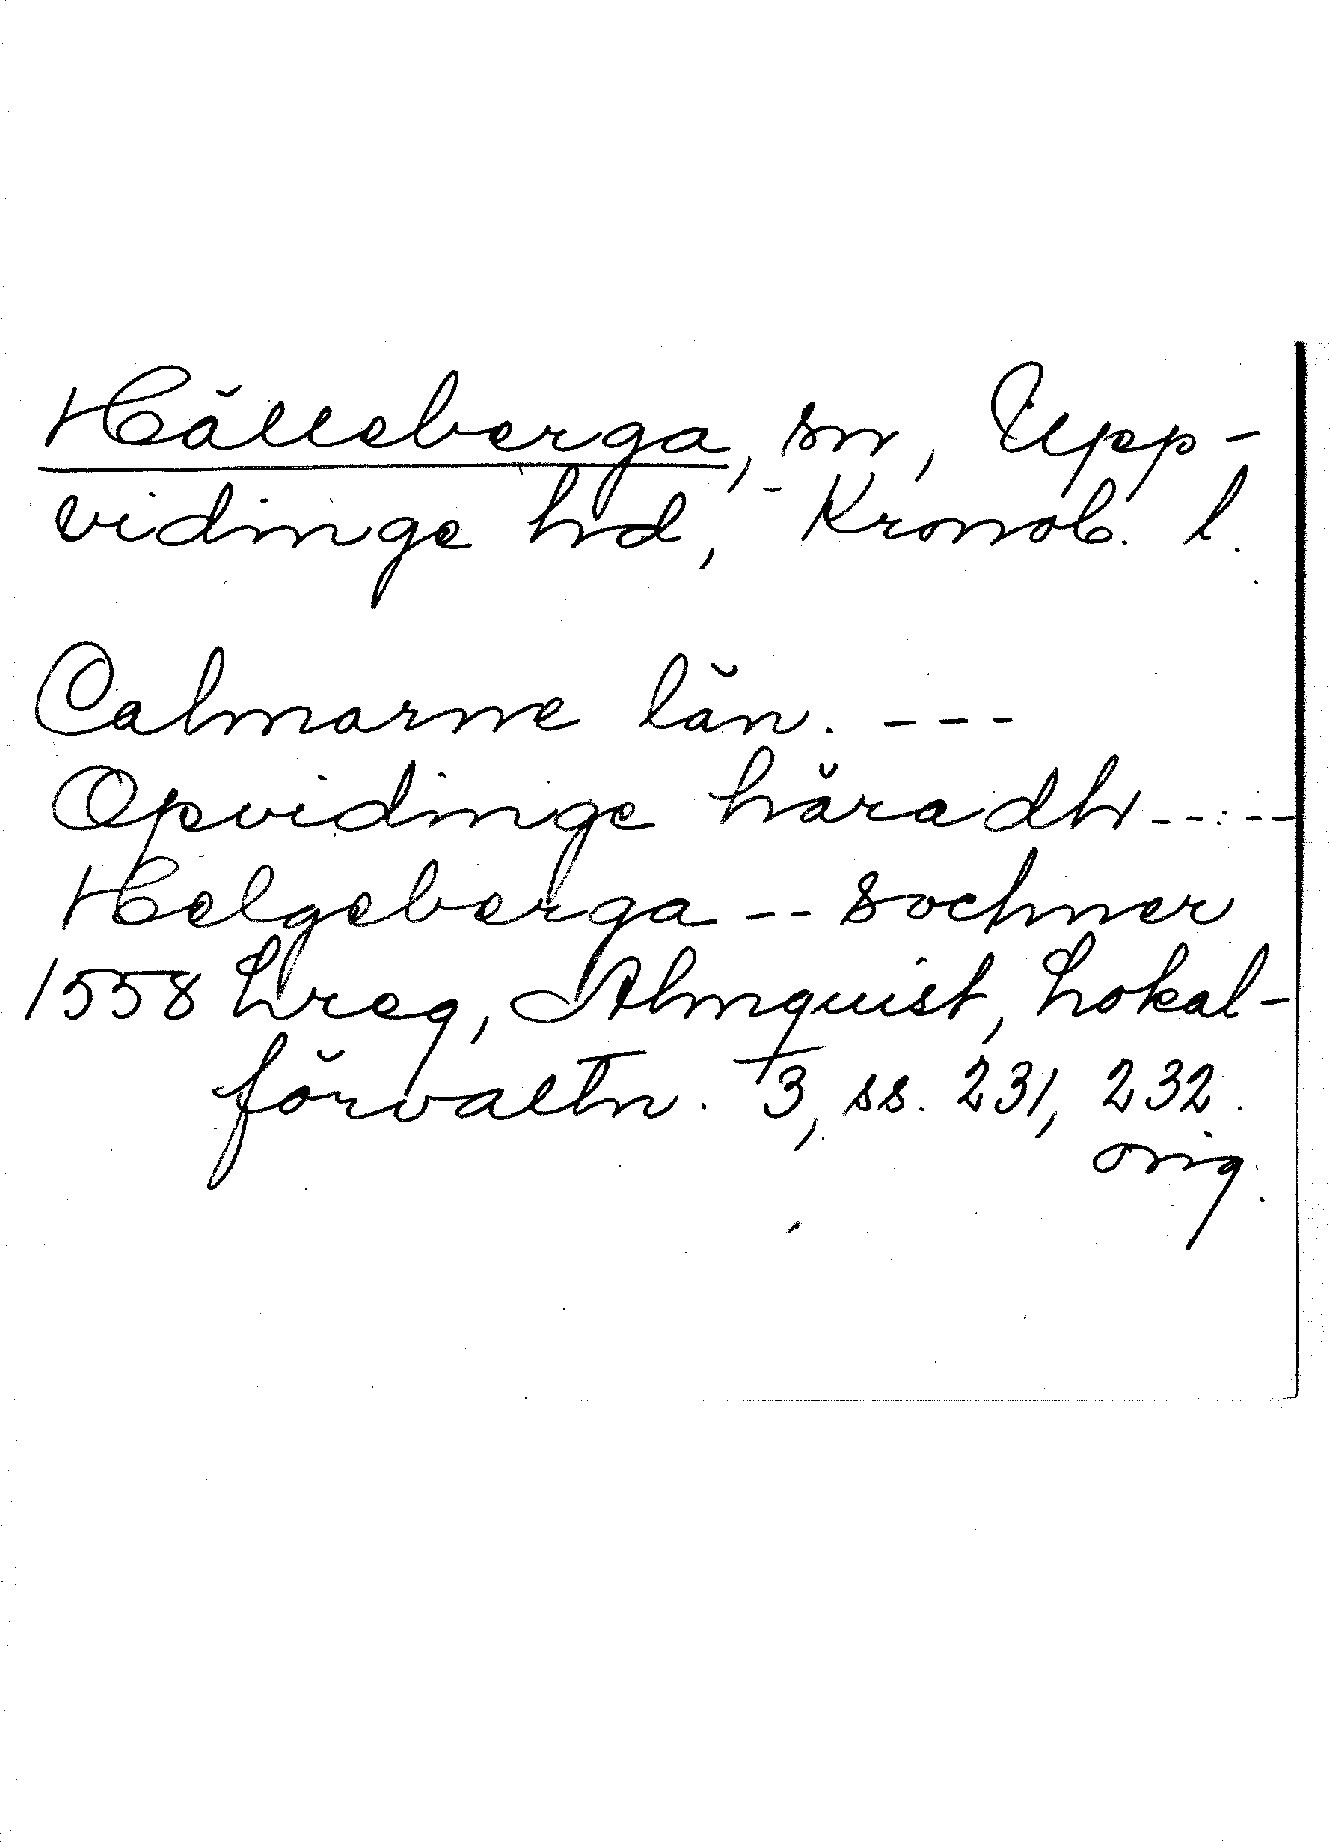 Hälleberga, sn, Upp-
vidinge hd, Kronob. l.
Calmarne län. ---
Opvidinge häradh -----
Helgeberga -- sochner
1558 Lreg, Almquist, Lokal-
förvaltn. 3, ss. 231, 232.
orig.